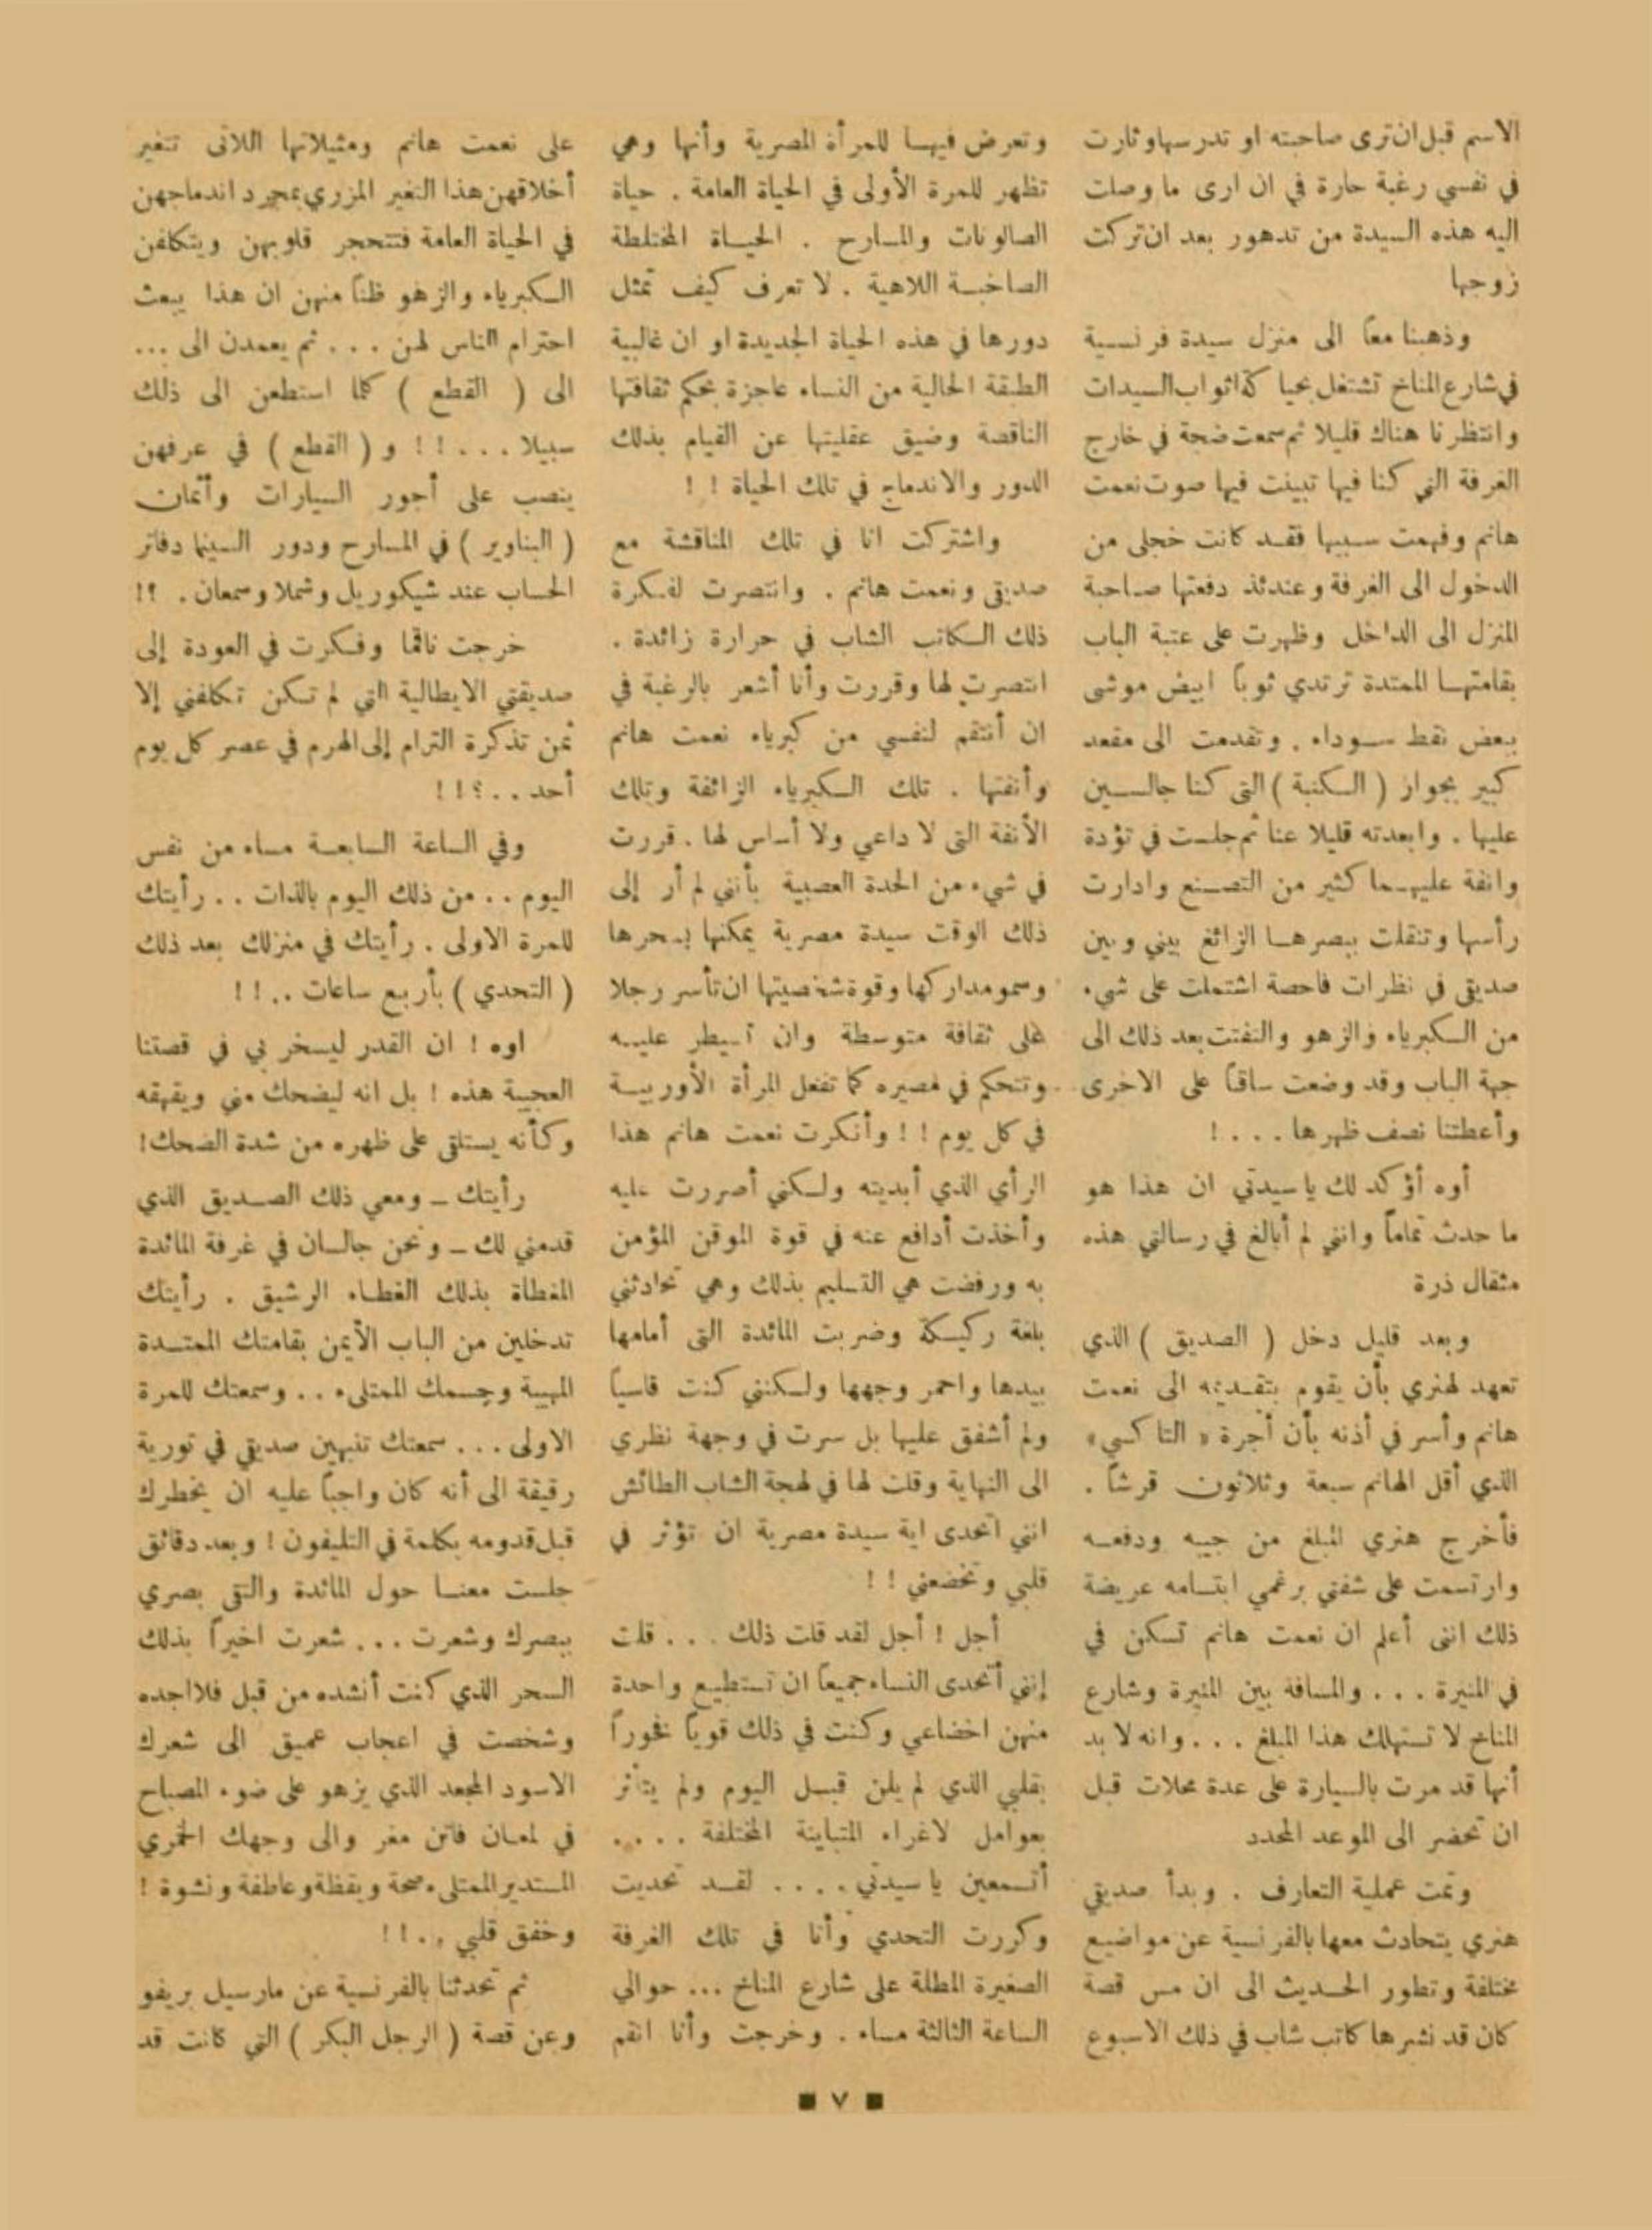 الاسم قبل ان ترى صاحبته او تدرسها وثارت
في نفسي رغبة حارة في ان ارى ما وصلت
اليه هذه السيدة من تدهور بعد ان تركت
زوجها
وذهبنا معاً الى منزل سيدة فرنسية
في شارع المناخ تشتغل بحياكة اثواب السيدات
وانتظرنا هناك قليلا ثم سمعت ضجة في خارج
الغرفة التي كنا فيها تبينت فيها صوت نعمت
هانم وفهمت سببها فقد كانت خجلى من
الدخول الى الغرفة وعندئذ دفعتها صاحبة
المنزل الى الداخل وظهرت على عتبة الباب
بقامتها الممتدة ترتدي ثوباً ابيض موشى
ببعض نقط سوداء . وتقدمت الى مقعد
كبير بجوار ( الكنبة ) التى كنا جالسين
عليها . وابعدته قليلا عنا ثم جلست في تؤدة
وانفة عليهما كثير من التصنع وادارت
رأسها وتنقلت ببصرها الزائغ بيني وبين
صديقى في نظرات فاحصة اشتملت على شيء
من الكبرياء والزهو والتفتت بعد ذلك الى
جهة الباب وقد وضعت ساقاً على الاخرى
وأعطتنا نصف ظهرها . . . . !
أوه أؤكد لك يا سيدتي ان هذا هو
ما حدث تماماً وانني لم أبالغ في رسالتي هذه
مثقال ذرة
وبعد قليل دخل ( الصديق ) الذي
تعهد لهنري بأن يقوم بتقديمه الى نعمت
هانم وأسر في أذنه بأن أجرة « التاكسي »
الذي أقل الهانم سبعة وثلاثون قرشاً .
فأخرج هنري المبلغ من جيبه ودفعه
وارتسمت على شفتي برغمي ابتسامه عريضة
ذلك اننى أعلم ان نعمت هانم تسكن في
في المنيرة . . . والمسافة بين المنيرة وشارع
المناخ لا تستهلك هذا المبلغ . . . وانه لا بد
أنها قد مرت بالسيارة على عدة محلات قبل
ان تحضر الى الموعد المحدد
وتمت عملية التعارف . وبدأ صديقي
هنري يتحادث معها بالفرنسية عن مواضيع
مختلفة وتطور الحديث الى ان مس قصة
كان قد نشرها كاتب شاب في ذلك الاسبوع
وتعرض فيها للمرأة المصرية وأنها وهي
تظهر للمرة الأولى في الحياة العامة . حياة
الصالونات والمسارح . الحياة المختلطة
الصاخبة اللاهية . لا تعرف كيف تمثل
دورها في هذه الحياة الجديدة او ان غالبية
الطبقة الحالية من النساء عاجزة بحكم ثقافتها
الناقصة وضيق عقليتها عن القيام بذلك
الدور والاندماج في تلك الحياة ! !
واشتركت انا في تلك المناقشة مع
صديقى ونعمت هانم . وانتصرت لفكرة
ذلك الكاتب الشاب في حرارة زائدة .
انتصرت لها وقررت وأنا أشعر بالرغبة في
ان أنتقم لنفسي من كبرياء نعمت هانم
وأنفتها . تلك الكبرياء الزائفة وتلك
الأنفة التى لا داعي ولا أساس لها . قررت
في شيء من الحدة العصبية بأننى لم أر إلى
ذلك الوقت سيدة مصرية يمكنها بسحرها
وسمو مداركها وقوة شخصيتها ان تأسر رجلا
على ثقافة متوسطة وان تسيطر عليه
وتتحكم في مصيره كما تفعل المرأة الأوربية
في كل يوم ! ! وأنكرت نعمت هانم هذا
الرأي الذي أبديته ولكني أصررت عليه
وأخذت أدافع عنه في قوة الموقن المؤمن
به ورفضت هي التسليم بذلك وهي تحادثني
بلغة ركيكة وضربت المائدة التى أمامها
بيدها واحمر وجهها ولكنني كنت قاسياً
ولم أشفق عليها بل سرت في وجهة نظري
الى النهاية وقلت لها في لهجة الشاب الطائش
انني اتحدى اية سيدة مصرية ان تؤثر في
قلبي وتخضعني ! !
أجل ! أجل لقد قلت ذلك . . . قلت
إنني أتحدى النساء جميعاً ان تستطيع واحدة
منهن اخضاعي وكنت في ذلك قوياً فخوراً
بقلبي الذي لم يلن قبل اليوم ولم يتأثر
بعوامل لاغراء المتباينة المختلفة . . . .
أتسمعين يا سيدتي . . . . لقد تحديت
وكررت التحدي وأنا في تلك الغرفة
الصغيرة المطلة على شارع المناخ ... حوالي
الساعة الثالثة مساء . وخرجت وأنا انقم
على نعمت هانم ومثيلاتها اللاتى تتغير
أخلاقهن هذا التغير المزري بمجرد اندماجهن
في الحياة العامة فتتحجر قلوبهن ويتكلفن
الكبرياء والزهو ظناً منهن ان هذا يبعث
احترام الناس لهن . . . ثم يعمدن الى ...
الى ( القطع ) كلما استطعن الى ذلك
سبيلا . . . . ! ! و ( القطع ) في عرفهن
ينصب على أجور السيارات وأثمان
( البناوير ) في المسارح ودور السينما دفاتر
الحساب عند شيكوريل وشملا وسمعان . ؟!
خرجت ناقما وفكرت في العودة إلى
صديقتي الايطالية التي لم تكن تكلفني إلا
ثمن تذكرة الترام إلى الهرم في عصر كل يوم
أحد . . ؟ ! !
وفي الساعة السابعة مساء من نفس
اليوم . . من ذلك اليوم بالذات . . رأيتك
للمرة الاولى . رأيتك في منزلك بعد ذلك
( التحدي ) بأربع ساعات . . ! !
اوه ! ان القدر ليسخر بي في قصتنا
العجيبة هذه ! بل انه ليضحك مني ويقهقه
وكأنه يستلقى على ظهره من شدة الضحك !
رأيتك ــ ومعي ذلك الصديق الذي
قدمني لك ــ ونحن جالسان في غرفة المائدة
المغطاة بذلك الغطاء الرشيق . رأيتك
تدخلين من الباب الأيمن بقامتك الممتدة
المهيبة وجسمك الممتلىء . . وسمعتك للمرة
الاولى . . . سمعتك تنبهين صديقي في تورية
رقيقة الى أنه كان واجباً عليه ان يخطرك
قبل قدومه بكلمة في التليفون ! وبعد دقائق
جلست معنا حول المائدة والتقى بصري
ببصرك وشعرت . . . شعرت اخيراً بذلك
السحر الذي كنت أنشده من قبل فلا اجده
وشخصت في اعجاب عميق الى شعرك
الاسود المجعد الذي يزهو على ضوء المصباح
في لمعان فاتن مغر والى وجهك الخمري
المستدير الممتلىء صحة ويقظة وعاطفة ونشوة !
وخفق قلبي . . ! !
ثم تحدثنا بالفرنسية عن مارسيل بريفو
وعن قصة ( الرجل البكر ) التي كانت قد
■ ٧ ■